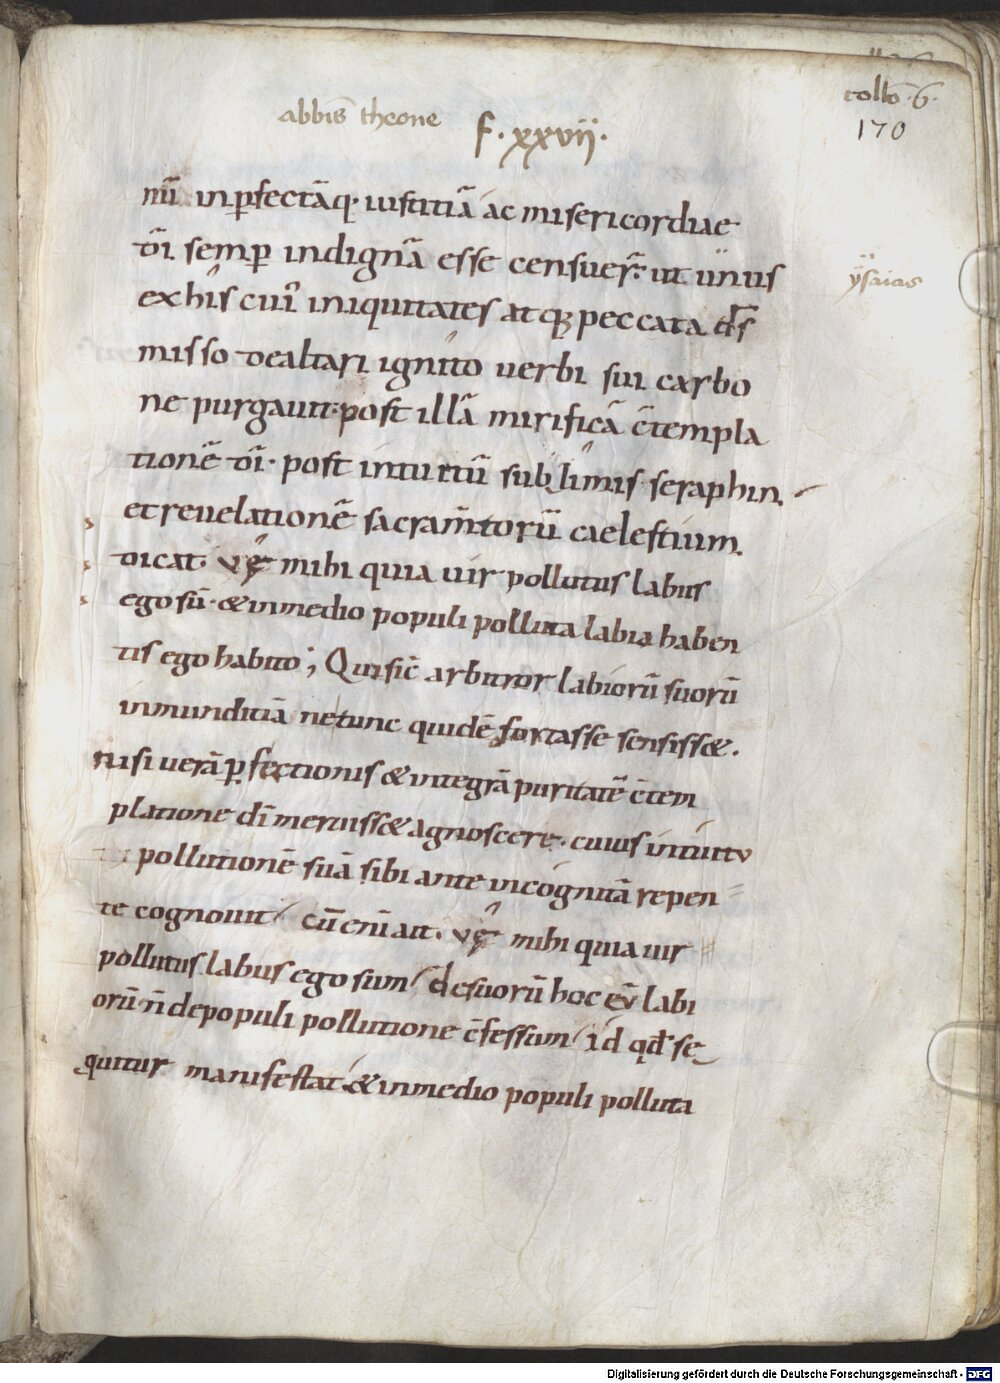 collo 6.
abbis theone f. xxvii.
170
nū inp̄fectāq; iustitiā ac misericordiae
dī semp̄ indignā esse censuer̄. ut unus
ysaias
ex his cui iniquitates atq; peccata dn̄s
misso de altari ignito verbi sui carbo
ne purgavit. post illā mirificā c̄templa
tionē dī. post intuitū sublimis seraphin.
et revelationē sacram̄torū caelestium.
dicat. vę mihi quia uir pollutus labiis
ego sū. & in medio populi polluta labia haben
tis ego habito; Qui sic̄ arbitror labiorū suorū
inmunditiā ne tunc quidē fortasse sensiss&.
nisi verā p̄fectionis & integrā puritatē c̄tem
platione dī meruiss& agnoscere. cuius intuitu
pollutionē suā sibi ante incognitā repen
te cognovit. cū enī ait. vę mihi quia uir
pollutus labiis ego sum. de suorū hoc eū labi
orū n̄ de populi pollutione c̄fessum. id qd̄ se
quitur manifestat. & in medio populi polluta
Digitalisierung gefördert durch die Deutsche Forschungsgemeinschaft - DFG